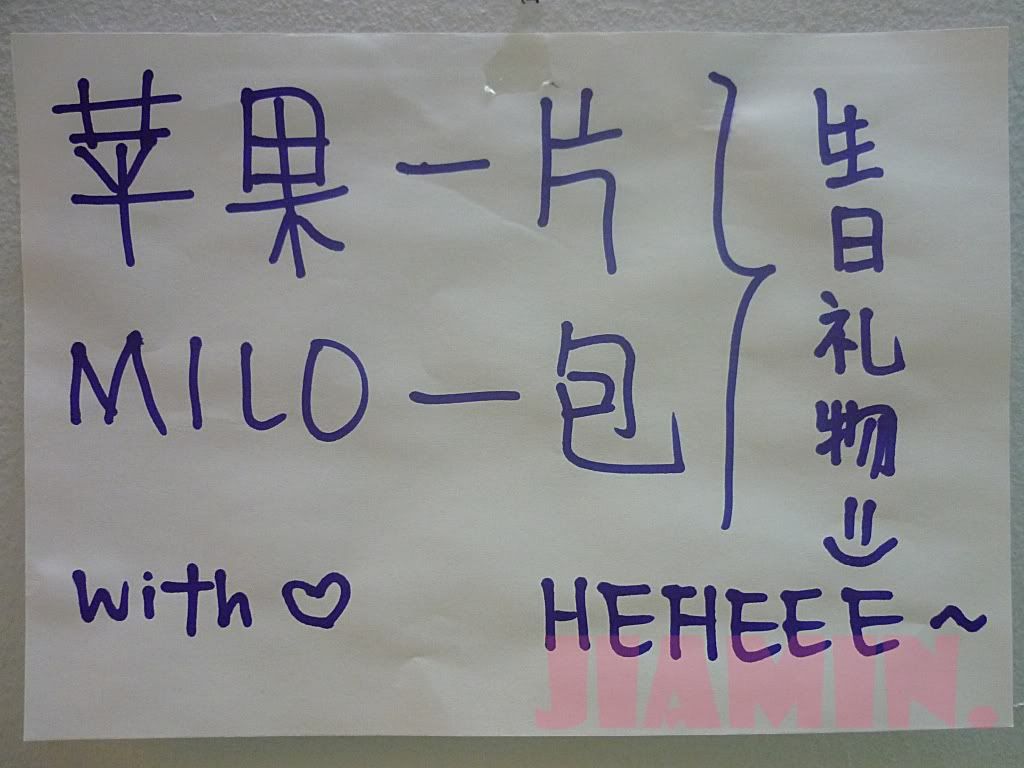 苹果一片
MILO一包
生日礼物
with ♡
HEHEEE~
JIAMIN.